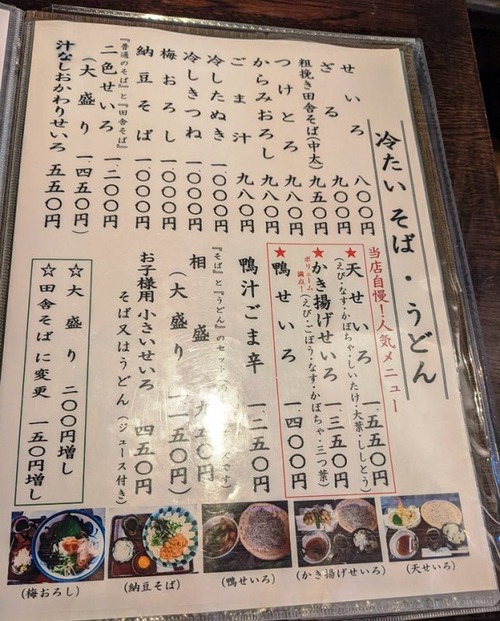 冷たい そば・うどん
せいろ 八〇〇円
ざる 九〇〇円
粗挽き田舎そば(中太) 九五〇円
つけとろ 九八〇円
からみおろし 九八〇円
ごま汁 九八〇円
冷したぬき 一、〇〇〇円
冷しきつね 一、〇〇〇円
梅おろし 一、〇〇〇円
納豆そば 一、〇〇〇円
『普通のそば』と『田舎そば』
二色せいろ 一、二〇〇円
(大盛り 一、四五〇円)
汁なしおかわりせいろ 五五〇円
当店自慢!人気メニュー
★天せいろ 一、五五〇円
(えび・なす・かぼちゃ・しいたけ・大葉・ししとう)
★かき揚げせいろ 一、三五〇円
ボリューム満点!
(えび・ごぼう・なす・かぼちゃ・三つ葉)
★鴨せいろ 一、四〇〇円
鴨汁ごま辛 一、二五〇円
『そば』と『うどん』のセット
です)
相盛 九五〇円
(大盛り 一、一五〇円)
お子様用 小さいせいろ 四五〇円
そば又はうどん (ジュース付き)
☆大盛り 二〇〇円増し
☆田舎そばに変更 一五〇円増し
(梅おろし)
(納豆そば)
(鴨せいろ)
(かき揚げせいろ)
(天せいろ)